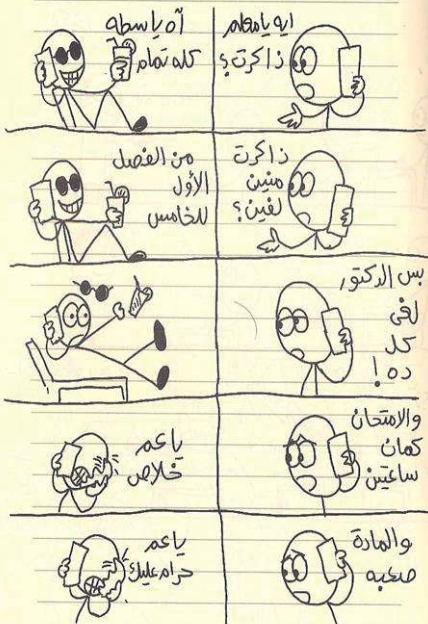 ايه يا معلم
ذاكرت؟
آه ياسطه
كله تمام
ذاكرت
منين
لفين؟
من الفصل
الأول
للخامس
بس الدكتور
لغى
كل
ده!
والامتحان
كمان
ساعتين
يا عم
خلاص
والمادة
صعبه
يا عم
حرام عليك